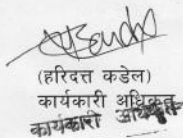 (हरिदत्त कडेल)
कार्यकारी अधिकृत
कार्यकारी अधिकृत